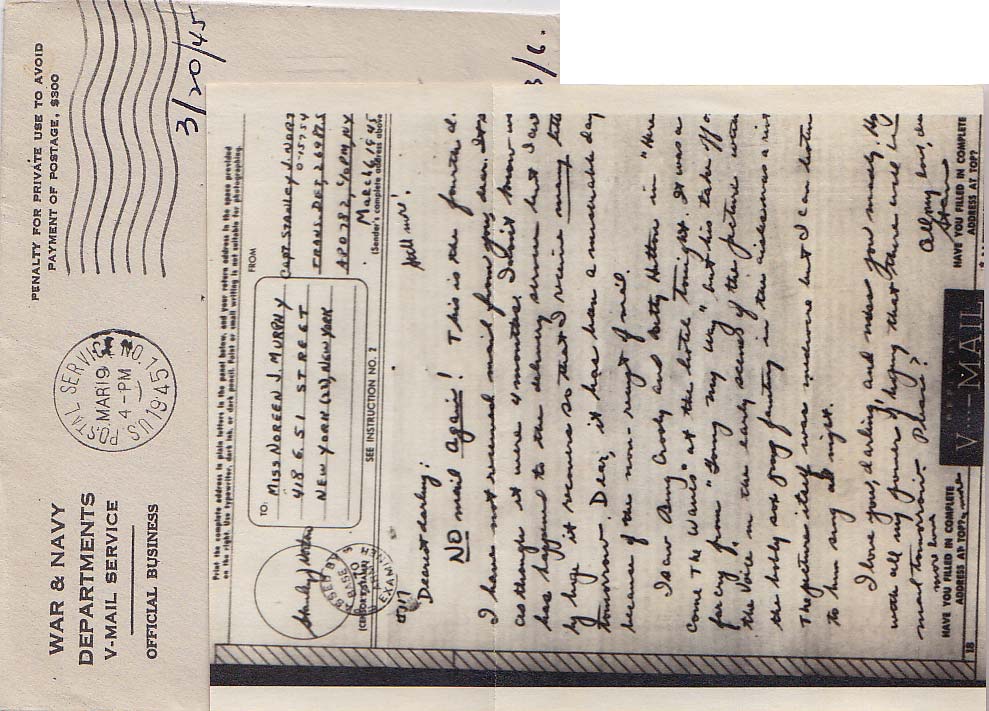 WAR & NAVY
DEPARTMENTS
V-MAIL SERVICE
OFFICIAL BUSINESS
U.S. POSTAL SERVICE NO. 1
MAR 19
4-PM
1945
PENALTY FOR PRIVATE USE TO AVOID
PAYMENT OF POSTAGE, $300
3/20/45
3/6.
Print the complete address in plain letters in the panel below, and your return address in the space provided
on the right. Use typewriter, dark ink, or dark pencil. Faint or small writing is not suitable for photographing.
TO:
MISS NOREEN J. MURPHY
418 E. 51 STREET
NEW YORK (22), NEW YORK
FROM
CAPT STANLEY J.
0-15754
APO 782, % PM, NY
March 6, 1945
(Sender's complete address above)
SEE INSTRUCTION NO. 2
PASSED BY
BASE
EXAMINER
Still more!
Dearest darling:
NO mail again! This is the fourth d
I have not received mail from you, dear. It
as though it were 4 months! I don't know w
has happened to the delivery service but I am
by hoping it recovers so that I receive many lette
tomorrow. Dear, it has been a miserable day
because of the non-receipt of mail.
I saw Bing Crosby and Betty Hutton in "Here
Come The Waves" at the hotel tonight. It was a
far cry from "Going my way" but his take off o
the Voice in the early scenes of the picture with
the bobby sox gang fainting in the aisles was a riot
The picture itself was mediocre but I can listen
to him sing all night.
I love you, darling and miss you madly. I
with all my powers of hoping that there will be
mail tomorrow. Please?
All my love, dear
Stan
more love
HAVE YOU FILLED IN COMPLETE
ADDRESS AT TOP?
V···—MAIL
HAVE YOU FILLED IN COMPLETE
ADDRESS AT TOP?
18